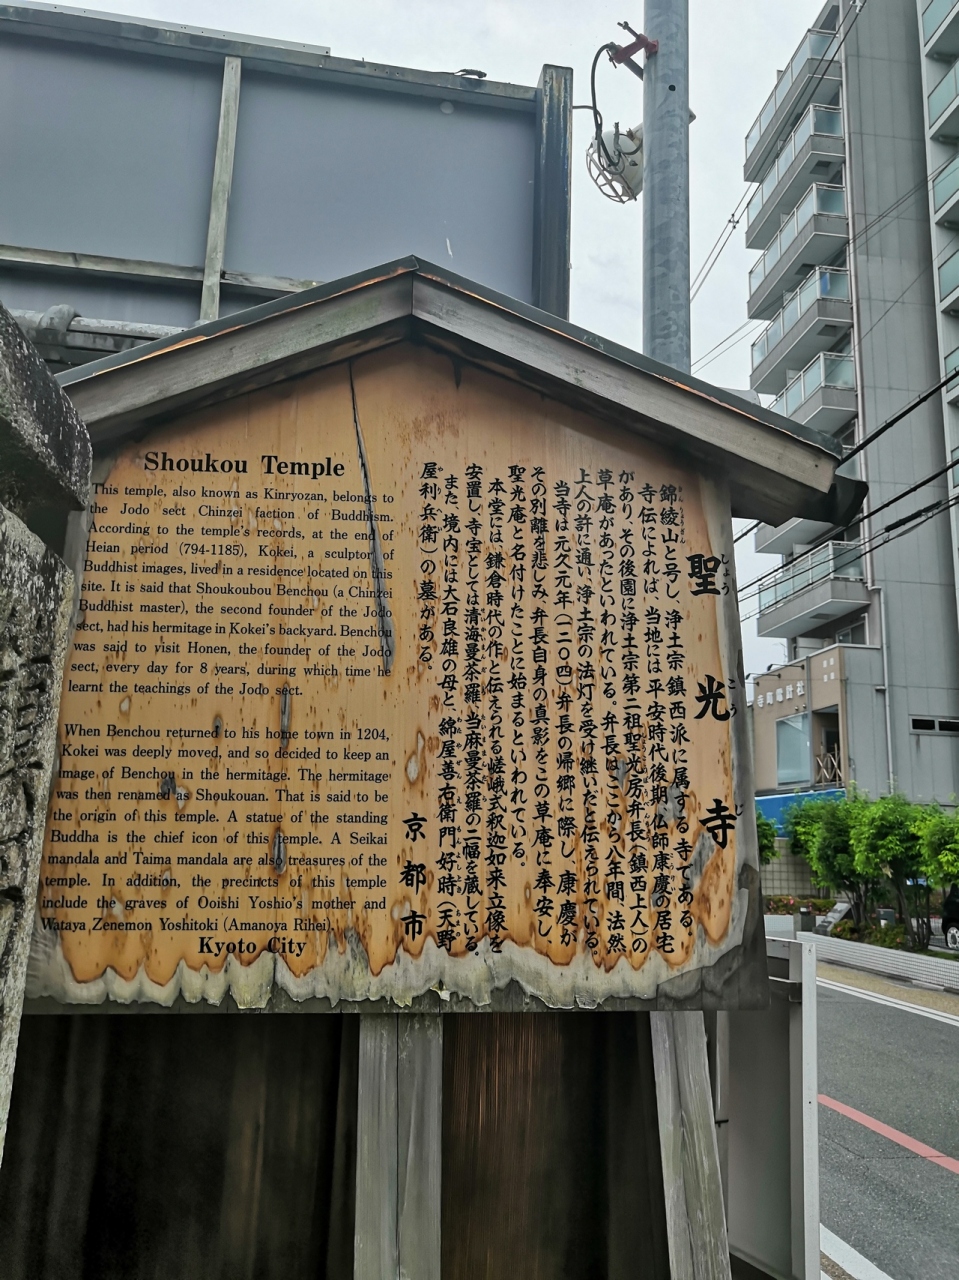 Shoukou Temple
This temple, also known as Kinryozan, belongs to
the Jodo sect Chinzei faction of Buddhism.
According to the temple's records, at the end of
Heian period (794-1185), Kokei, a sculptor of
Buddhist images, lived in a residence located on this
site. It is said that Shoukoubou Benchou (a Chinzei
Buddhist master), the second founder of the Jodo
sect, had his hermitage in Kokei's backyard. Benchou
was said to visit Honen, the founder of the Jodo
sect, every day for 8 years, during which time he
learnt the teachings of the Jodo sect.
When Benchou returned to his home town in 1204,
Kokei was deeply moved, and so decided to keep an
image of Benchou in the hermitage. The hermitage
was then renamed as Shoukouan. That is said to be
the origin of this temple. A statue of the standing
Buddha is the chief icon of this temple. A Seikai
mandala and Taima mandala are also treasures of the
temple. In addition, the precincts of this temple
include the graves of Ooishi Yoshio's mother and
Wataya Zenemon Yoshitoki (Amanoya Rihei).
Kyoto City
聖光寺
しょうこうじ
錦綾山と号し、浄土宗鎮西派に属する寺である。
寺伝によれば、当地には平安時代後期、仏師康慶の居宅
があり、その後園に浄土宗第二祖聖光房弁長(鎮西上人)の
草庵があったといわれている。弁長はここから八年間、法然
上人の許に通い、浄土宗の法灯を受け継いだと伝えられている。
当寺は元久元年(一二〇四)弁長の帰郷に際し、康慶が
その別離を悲しみ、弁長自身の真影をこの草庵に奉安し、
聖光庵と名付けたことに始まるといわれている。
本堂には、鎌倉時代の作と伝えられる嵯峨式釈迦如来立像を
安置し、寺宝としては清海曼荼羅、当麻曼荼羅の二幅を蔵している。
また、境内には大石良雄の母と、綿屋善右衛門好時(天野
屋利兵衛)の墓がある。
京都市